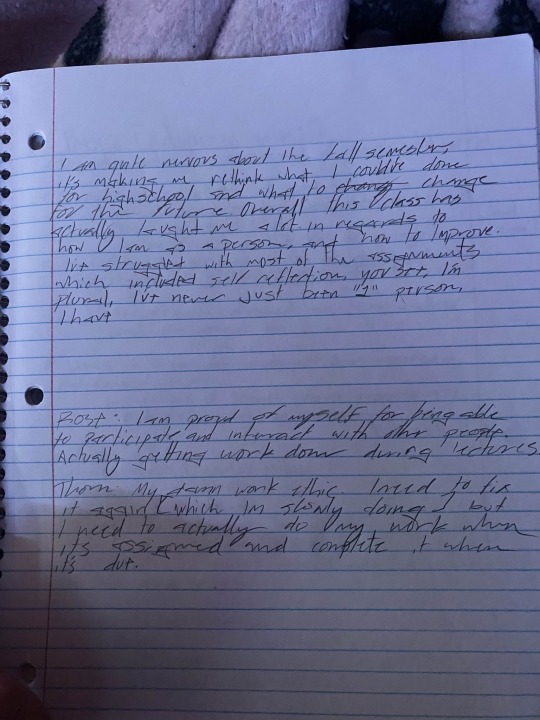 I am quite nervous about the fall semester,
it's making me rethink what I could've done
for highschool and what to change change
for the future. Overall this class has
actually taught me a lot in regards to
how I am as a person, and how to improve.
I've struggled with most of the assignments
which included self reflection, you see, I'm
plural, I've never just been "1" person,
I have
Rose: I am proud of myself for being able
to participate and interact with other people.
Actually getting work done during lectures.
Thorn: My damn work ethic. I need to fix
it again (which im slowly doing) but
I need to actually do my work when
it's assigned and complete it when
it's due.